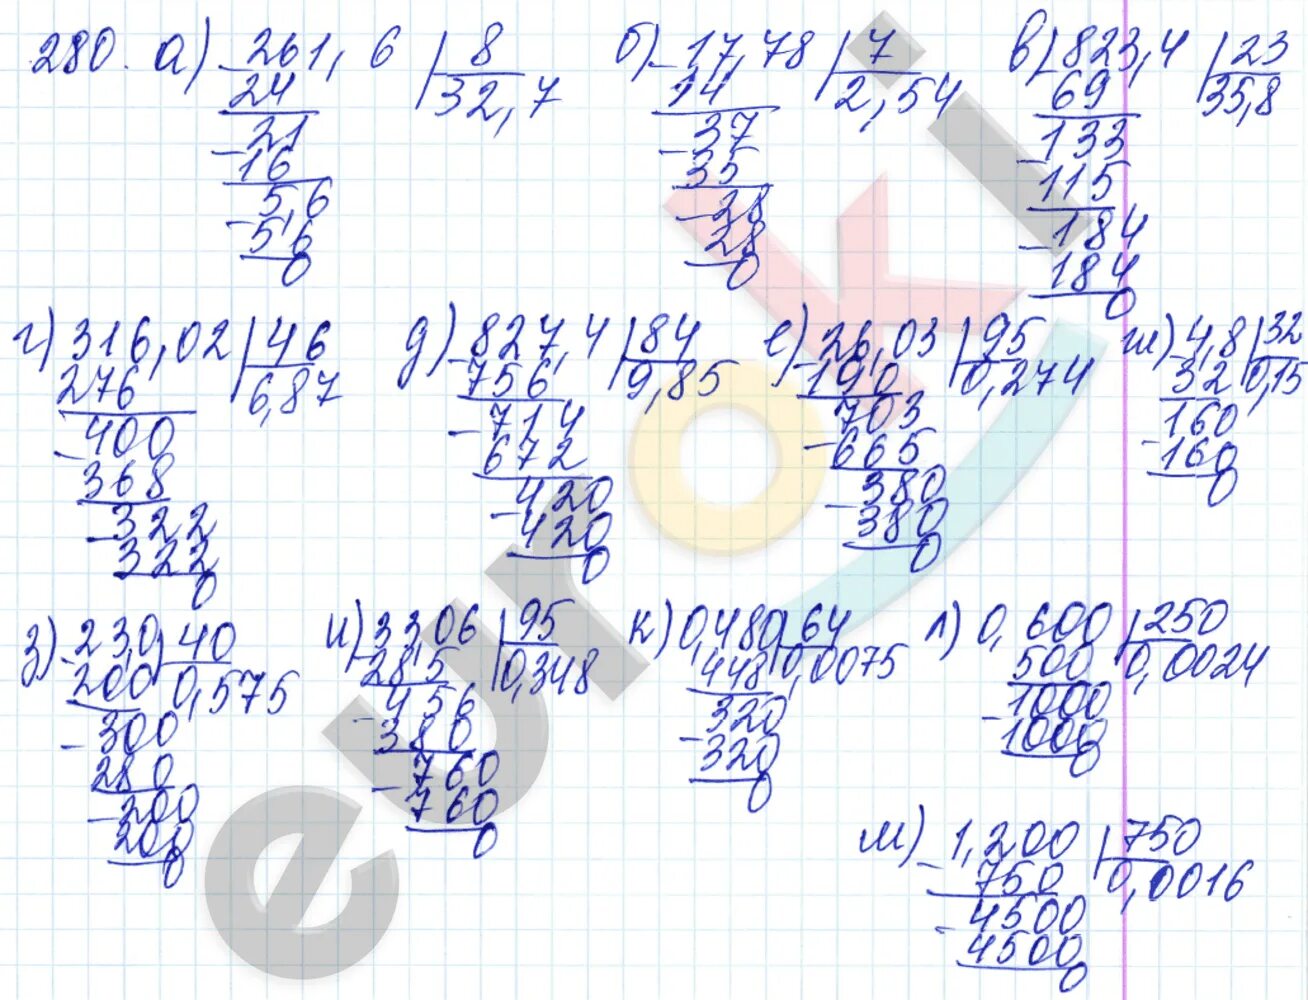 280. а) 261,6 | 8
24 32,7
- 21
16
- 5,6
5,6
0
б) 17,78 | 7
14 2,54
- 37
35
- 28
28
0
в) 823,4 | 23
69 35,8
- 133
115
- 184
184
0
г) 316,02 | 46
276 6,87
- 400
368
- 322
322
0
д) 827,4 | 84
- 756 9,85
- 714
672
- 420
420
0
е) 26,03 | 95
- 190 0,274
703
- 665
- 380
380
0
ж) 4,8 | 32
- 32 0,15
160
- 160
0
з) 23,0 | 40
- 200 0,575
- 300
280
- 200
200
0
и) 33,06 | 95
- 285 0,348
456
- 380
- 760
760
0
к) 0,480 | 64
448 0,0075
- 320
320
0
л) 0,600 | 250
500 0,0024
- 1000
1000
0
м) - 1,200 | 750
750 0,0016
- 4500
4500
0
euroki